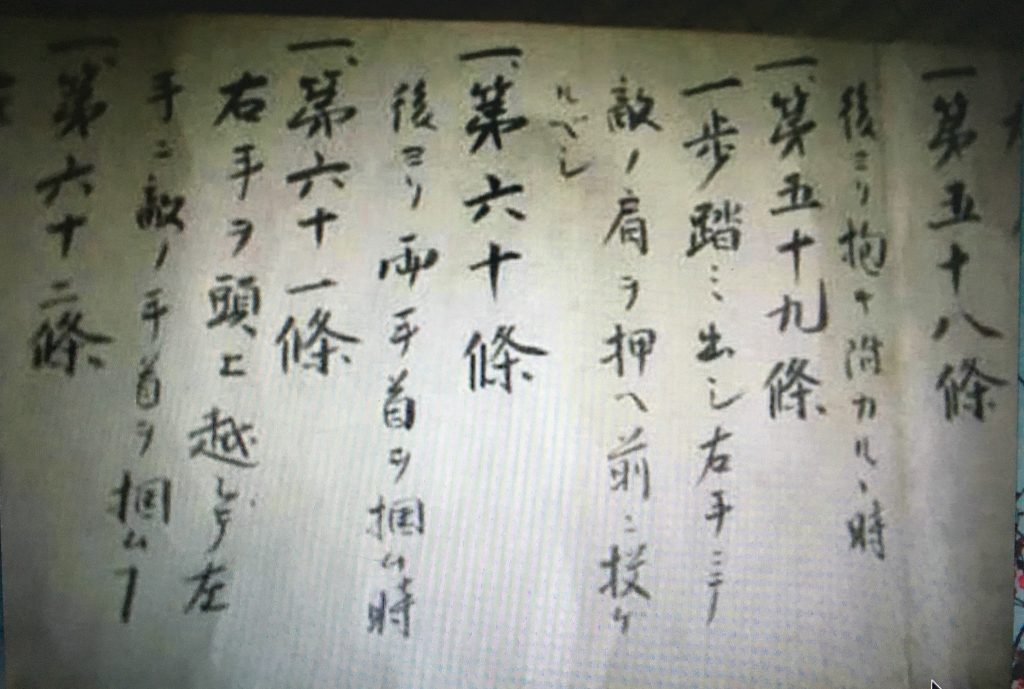 一、第五十八條
後ヨリ抱キ附カルヽ時
一、第五十九條
一歩踏ミ出シ右手ニテ
敵ノ肩ヲ押ヘ前ニ投ケ
ルベシ
一、第六十條
後ヨリ両手首ヲ掴ム時
一、第六十一條
右手ヲ頭上越シデ左
手ニ敵ノ手首ヲ掴ムヿ
一、第六十二條